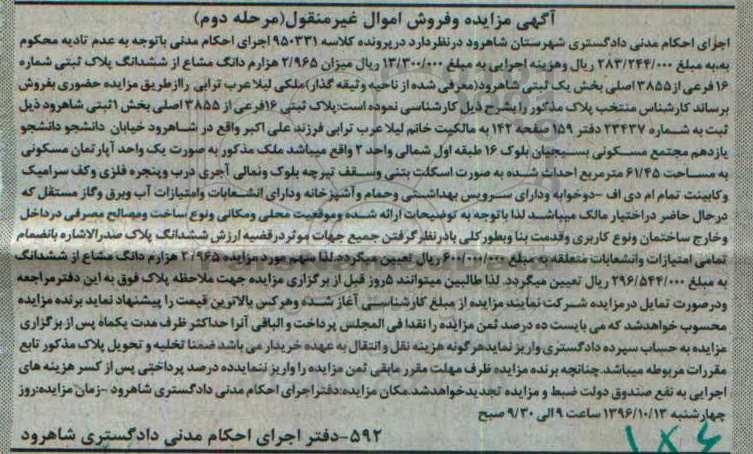 آگهی مزایده وفروش اموال غیرمنقول(مرحله دوم)
اجرای احکام مدنی دادگستری شهرستان شاهرود درنظردارد درپرونده کلاسه ۹۵۰۳۳۱ اجرای احکام مدنی باتوجه به عدم تادیه محکوم
به،به مبلغ ۲۸۳/۲۴۴/۰۰۰ ریال وهزینه اجرایی به مبلغ ۱۳/۳۰۰/۰۰۰ ریال میزان ۲/۹۶۵ هزارم دانگ مشاع از ششدانگ پلاک ثبتی شماره
۱۶ فرعی از۳۸۵۵ اصلی بخش یک ثبتی شاهرود(معرفی شده از ناحیه وثیقه گذار)ملکی لیلا عرب ترابی راازطریق مزایده حضوری بفروش
برساند کارشناس منتخب پلاک مذکور را بشرح ذیل کارشناسی نموده است:پلاک ثبتی ۱۶فرعی از ۳۸۵۵ اصلی بخش ۱ثبتی شاهرود ذیل
ثبت به شماره ۲۳۴۳۷ دفتر ۱۵۹ صفحه ۱۴۲ به مالکیت خانم لیلا عرب ترابی فرزند علی اکبر واقع در شاهرود خیابان دانشجو دانشجو
یازدهم مجتمع مسکونی بسیجیان بلوک ۱۶ طبقه اول شمالی واحد ۲ واقع میباشد ملک مذکور به صورت یک واحد آپارتمان مسکونی
به مساحت ۶۱/۴۵ مترمربع احداث شده به صورت اسکلت بتنی وسقف تیرچه بلوک ونمائی آجری درب وپنجره فلزی وکف سرامیک
وکابینت تمام ام دی اف -دوخوابه ودارای سرویس بهداشتی وحمام وآشپزخانه ودارای انشعابات وامتیازات آب وبرق وگاز مستقل که
درحال حاضر دراختیار مالک میباشد لذا باتوجه به توضیحات ارائه شده وموقعیت محلی ومکانی ونوع ساخت ومصالح مصرفی درداخل
وخارج ساختمان ونوع کاربری وقدمت بنا وبطورکلی بادرنظرگرفتن جمیع جهات موثردرقضیه ارزش ششدانگ پلاک صدرالاشاره بانضمام
تمامی امتیازات وانشعابات متعلقه به مبلغ ۶۰۰/۰۰۰/۰۰۰ ریال تعیین میگردد.لذا سهم مورد مزایده ۲/۹۶۵ هزارم دانگ مشاع از ششدانگ
به مبلغ ۲۹۶/۵۴۴/۰۰۰ ریال تعیین میگردد. لذا طالبین میتوانند ۵روز قبل از برگزاری مزایده جهت ملاحظه پلاک فوق به این دفترمراجعه
ودرصورت تمایل درمزایده شرکت نمایند مزایده از مبلغ کارشناسی آغاز شده وهرکس بالاترین قیمت را پیشنهاد نماید برنده مزایده
محسوب خواهدشد که می بایست ده درصد ثمن مزایده را نقدا فی المجلس پرداخت و الباقی آنرا حداکثر ظرف مدت یکماه پس از برگزاری
مزایده به حساب سپرده دادگستری واریز نماید.هرگونه هزینه نقل و انتقال به عهده خریدار می باشد ضمنا تخلیه و تحویل پلاک مذکور تابع
مقررات مربوطه میباشد.چنانچه برنده مزایده ظرف مهلت مقرر مابقی ثمن مزایده را واریز ننماید،ده درصد پرداختی پس از کسر هزینه های
اجرایی به نفع صندوق دولت ضبط و مزایده تجدیدخواهدشد.مکان مزایده:دفتراجرای احکام مدنی دادگستری شاهرود -زمان مزایده:روز
چهارشنبه ۱۳۹۶/۱۰/۱۳ ساعت ۹الی ۹/۳۰ صبح
۵۹۲-دفتر اجرای احکام مدنی دادگستری شاهرود